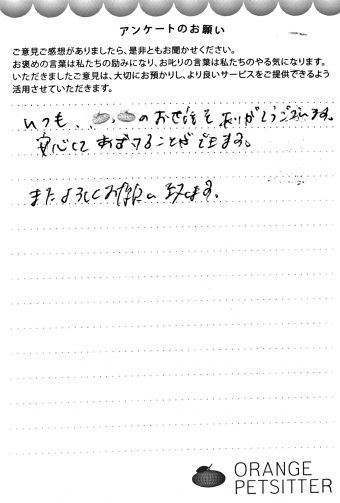 アンケートのお願い
ご意見ご感想がありましたら、是非ともお聞かせください。
お褒めの言葉は私たちの励みになり、お叱りの言葉は私たちのやる気になります。
いただきましたご意見は、大切にお預かりし、より良いサービスをご提供できるよう
活用させていただきます。
いつも、のお世話をありがとうございます。
安心してあずけることができます。
またよろしくお願い致します。
ORANGE
PETSITTER